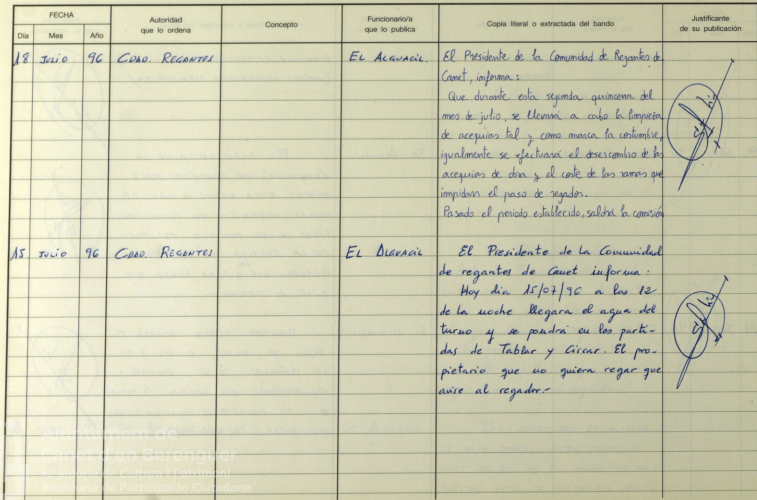 FECHA
Día Mes Año
Autoridad
que lo ordena
Concepto
Funcionario/a
que lo publica
Copia literal o extractada del bando
Justificante
de su publicación
18 JULIO 96 CDAD. REGANTES EL ALGUACIL.
El Presidente de la Comunidad de Regantes de
Canet, informa:
Que durante esta segunda quincena del
mes de julio, se llevará a cabo la limpieza
de acequias tal y como marca la costumbre,
igualmente se efectuará el desescombro de las
acequias de obra y el corte de las ramas que
impidan el paso de regador.
Pasado el periodo establecido, saldrá la comisión
15 JULIO 96 CDAD. REGANTES EL ALGUACIL
El Presidente de la Comunidad
de regantes de Canet informa:
Hoy dia 15/07/96 a las 12
de la noche llegara el agua del
turno y se pondrá en les parti-
das de Tablar y Circar. El pro-
pietario que no quiera regar que
avise al regador.-
Ajuntament de
Canet d'en Berenguer
Participació Ciutadana